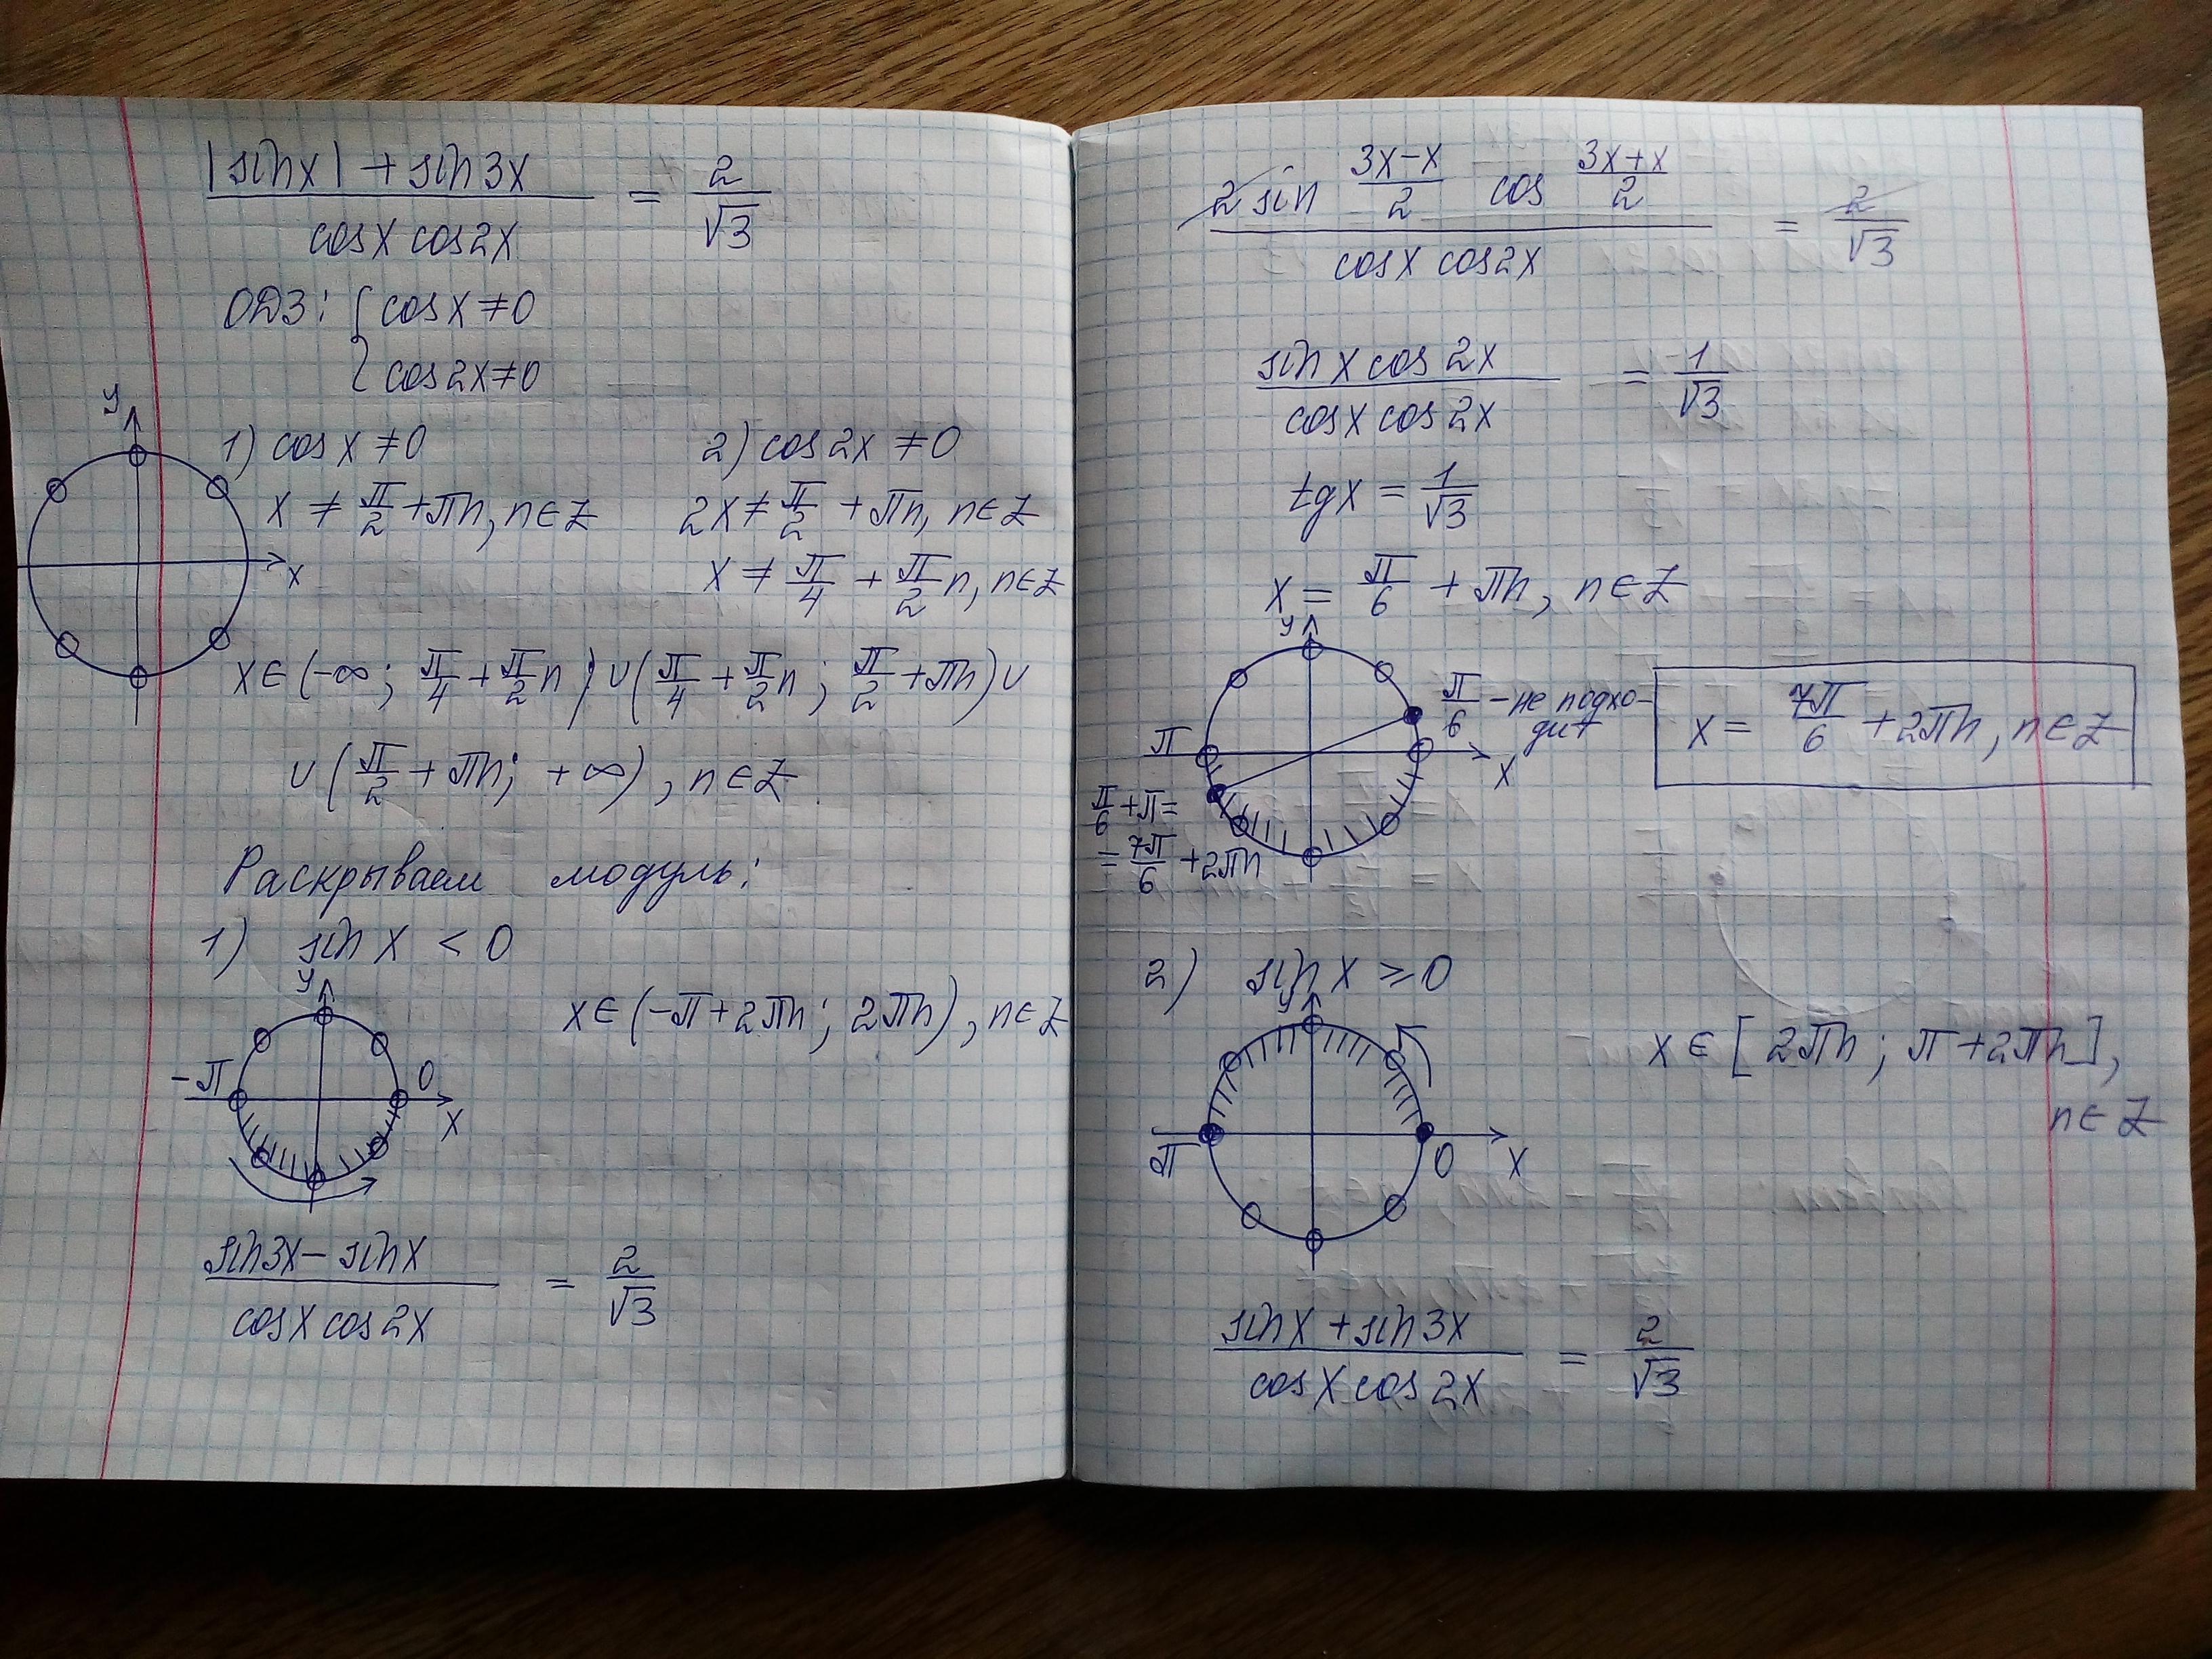 |sinx| + sin3x / cosx cos2x = 2/√3
ОДЗ: { cosx ≠ 0
{ cos2x ≠ 0
y
1) cosx ≠ 0
2) cos2x ≠ 0
x ≠ π/2 + πn, n∈Z
2x ≠ π/2 + πn, n∈Z
x
x ≠ π/4 + π/2 n, n∈Z
x∈(-∞; π/4 + π/2 n) ∪ (π/4 + π/2 n; π/2 + πn) ∪
∪ (π/2 + πn; +∞), n∈Z
Раскрываем модуль:
1) sinx < 0
y
x∈(-π+2πn; 2πn), n∈Z
-π 0
x
sin3x - sinx / cosx cos2x = 2/√3
2 sin 3x-x/2 cos 3x+x/2 / cosx cos2x = 2/√3
sinx cos2x / cosx cos2x = 1/√3
tgx = 1/√3
x = π/6 + πn, n∈Z
y
π/6 - не подхо-
дит
π
x
x = 7π/6 + 2πn, n∈Z
π/6 + π =
= 7π/6 + 2πn
2) sinx ≥ 0
y
x∈[2πn; π+2πn],
n∈Z
π 0 x
sinx + sin3x / cosx cos2x = 2/√3